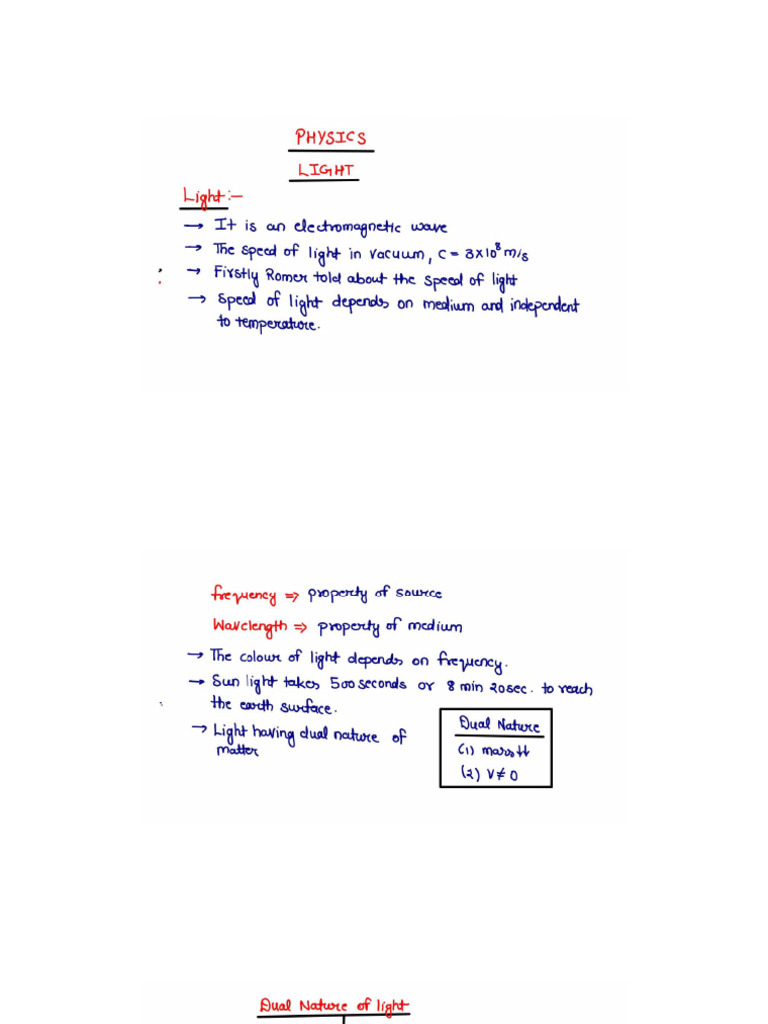 PHYSICS
LIGHT
Light:-
→ It is an electromagnetic wave
→ The speed of light in vacuum, c = 3×10⁸ m/s
→ Firstly Romer told about the speed of light
→ Speed of light depends on medium and independent
to temperature.
frequency ⇒ property of source
Wavelength ⇒ property of medium
→ The colour of light depends on frequency.
→ Sun light takes 500 seconds or 8 min 20 sec. to reach
the earth surface.
→ Light having dual nature of
matter
Dual Nature
(1) mass↓↓
(2) V ≠ 0
Dual Nature of light